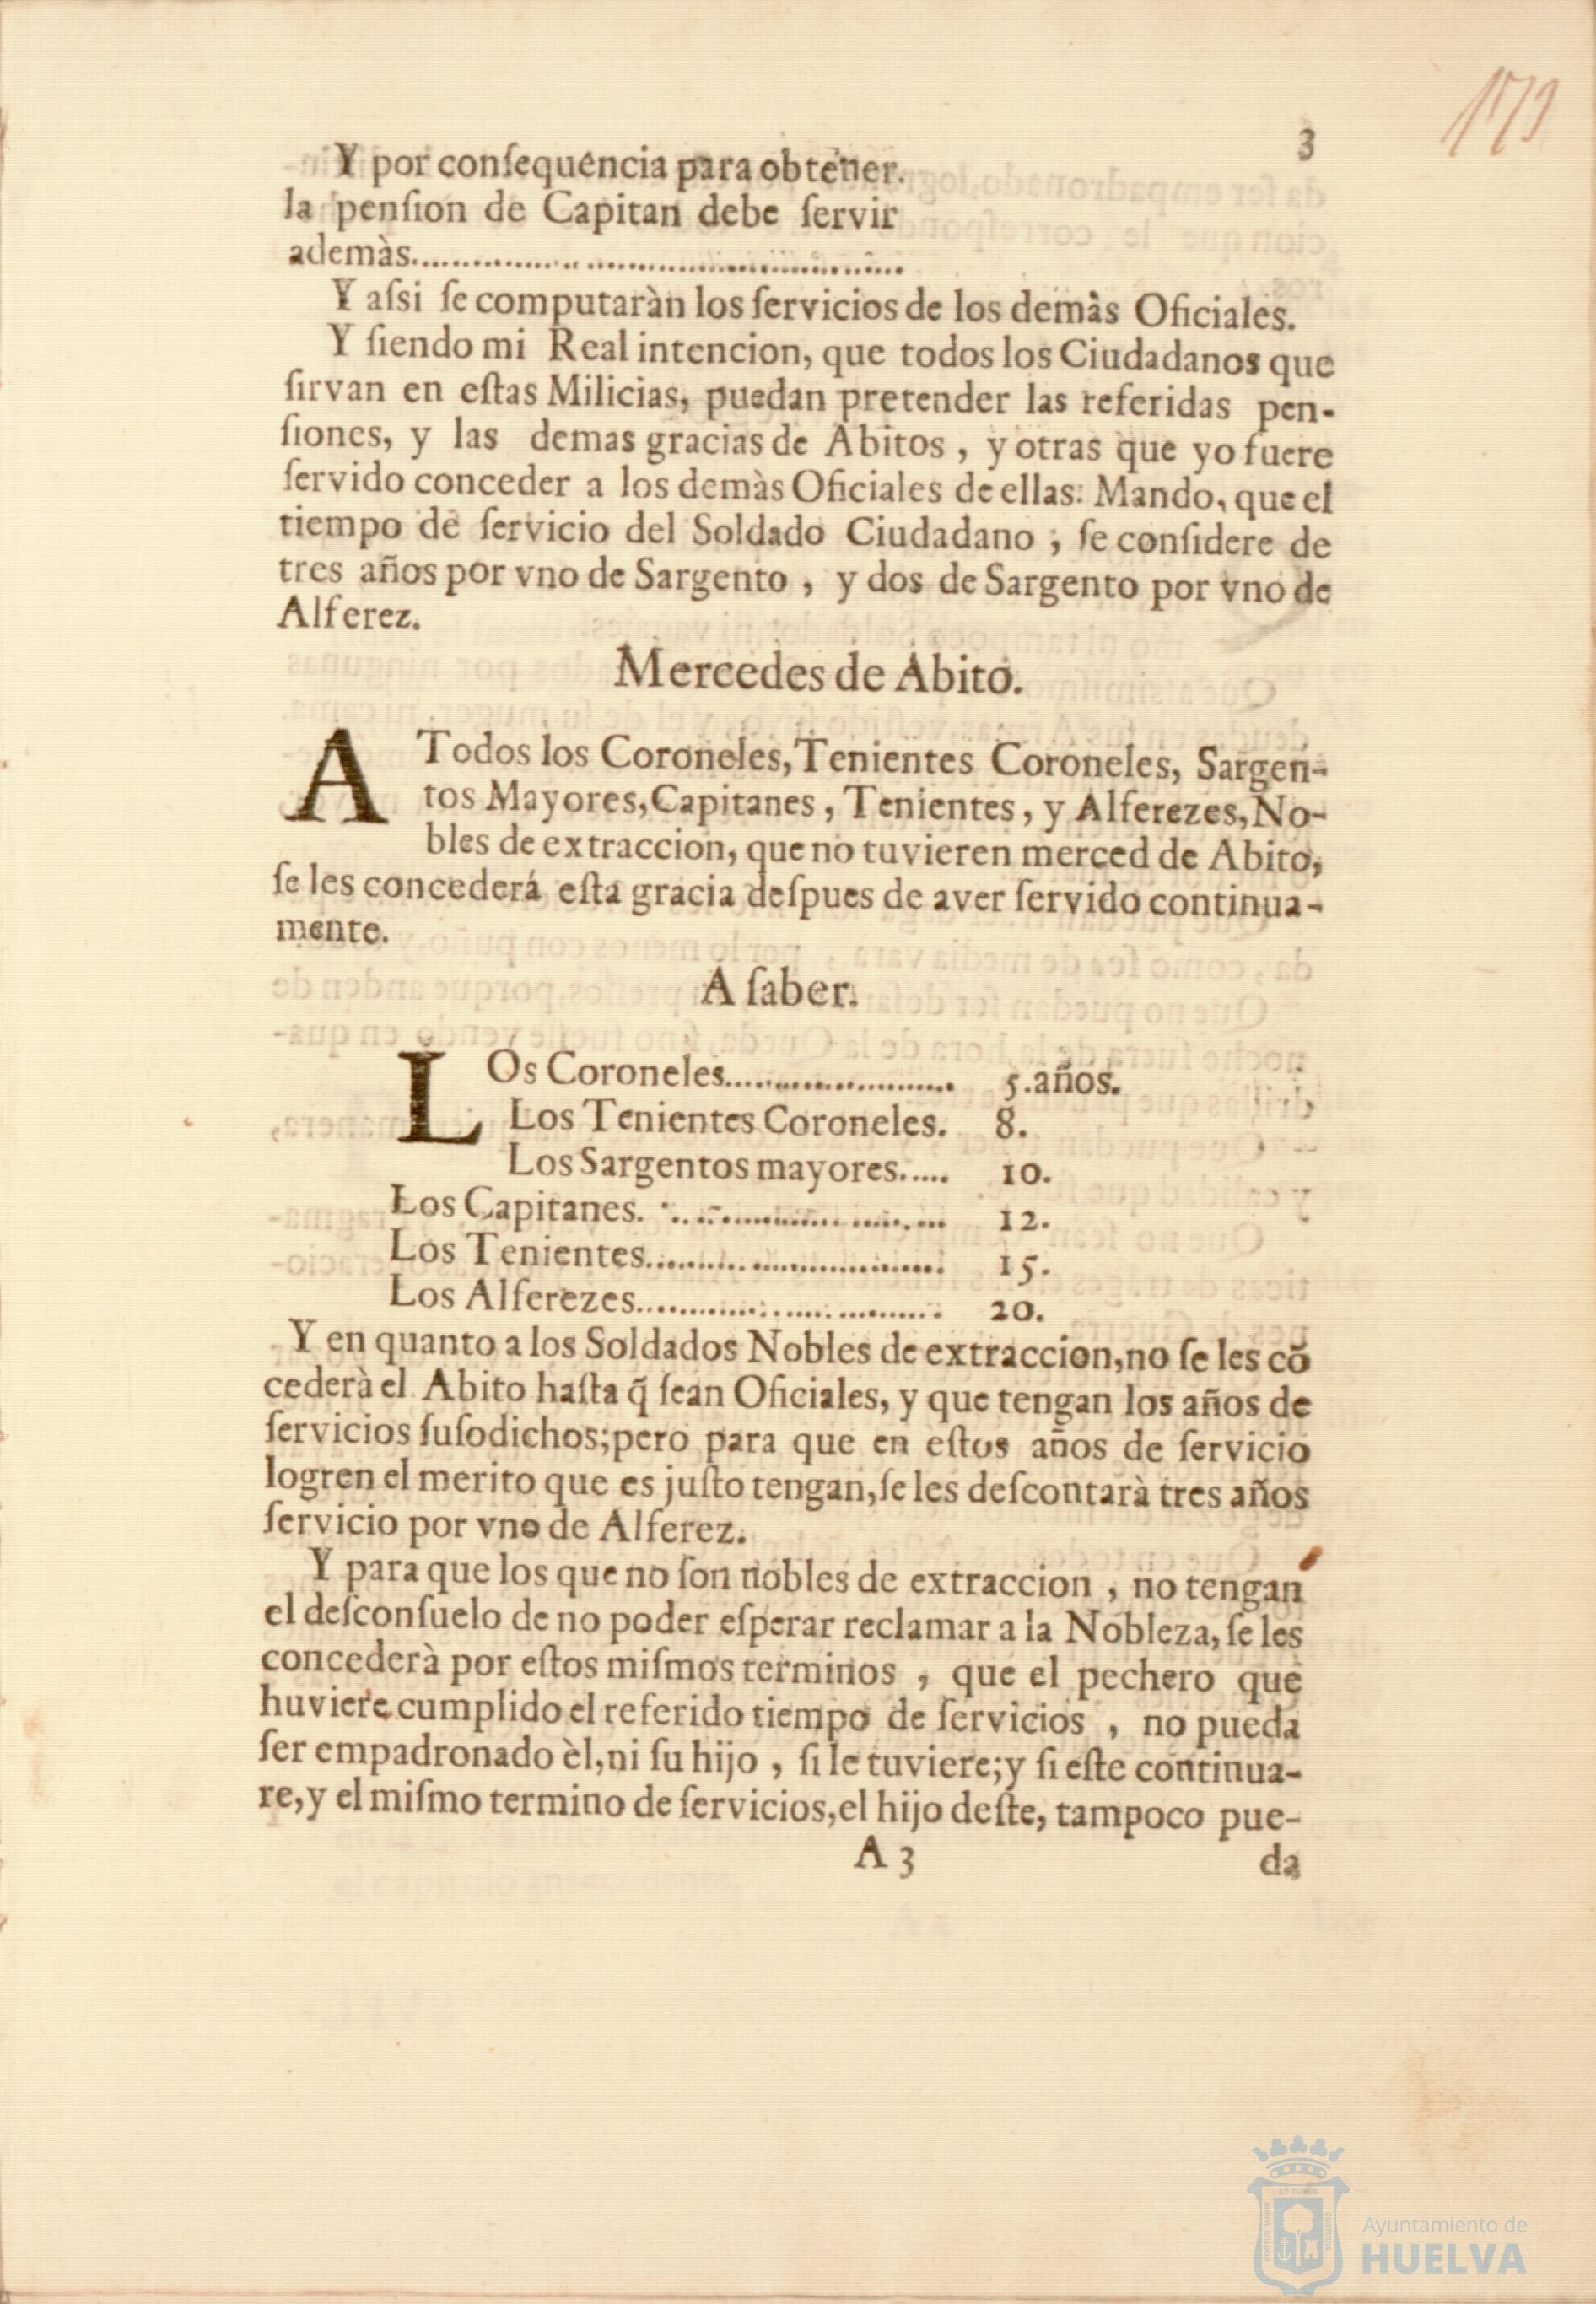 179
3
Y por conſequencia para obtener.
la penſion de Capitan debe ſervir
ademàs..........................................
Y aſsi ſe computaràn los ſervicios de los demàs Oficiales.
Y ſiendo mi Real intencion, que todos los Ciudadanos que
ſirvan en eſtas Milicias, puedan pretender las referidas pen-
ſiones, y las demas gracias de Abitos, y otras que yo fuere
ſervido conceder a los demàs Oficiales de ellas: Mando, que el
tiempo de ſervicio del Soldado Ciudadano, ſe conſidere de
tres años por vno de Sargento, y dos de Sargento por vno de
Alferez.
Mercedes de Abito.
A Todos los Coroneles, Tenientes Coroneles, Sargen-
tos Mayores, Capitanes, Tenientes, y Alferezes, No-
bles de extraccion, que no tuvieren merced de Abito,
ſe les concederá eſta gracia deſpues de aver ſervido continua-
mente.
A ſaber.
LOs Coroneles..................... 5. años.
Los Tenientes Coroneles. 8.
Los Sargentos mayores..... 10.
Los Capitanes. ........................ 12.
Los Tenientes........................... 15.
Los Alferezes........................... 20.
Y en quanto a los Soldados Nobles de extraccion, no ſe les cõ
cederà el Abito haſta q̃ ſean Oficiales, y que tengan los años de
ſervicios ſuſodichos; pero para que en eſtos años de ſervicio
logren el merito que es juſto tengan, ſe les deſcontarà tres años
ſervicio por vno de Alferez.
Y para que los que no ſon nobles de extraccion, no tengan
el deſconſuelo de no poder eſperar reclamar a la Nobleza, ſe les
concederà por eſtos miſmos terminos, que el pechero que
huviere cumplido el referido tiempo de ſervicios, no pueda
ſer empadronado èl, ni ſu hijo, ſi le tuviere; y ſi eſte continua-
re, y el miſmo termino de ſervicios, el hijo deſte, tampoco pue-
A 3 da
Ayuntamiento de
HUELVA